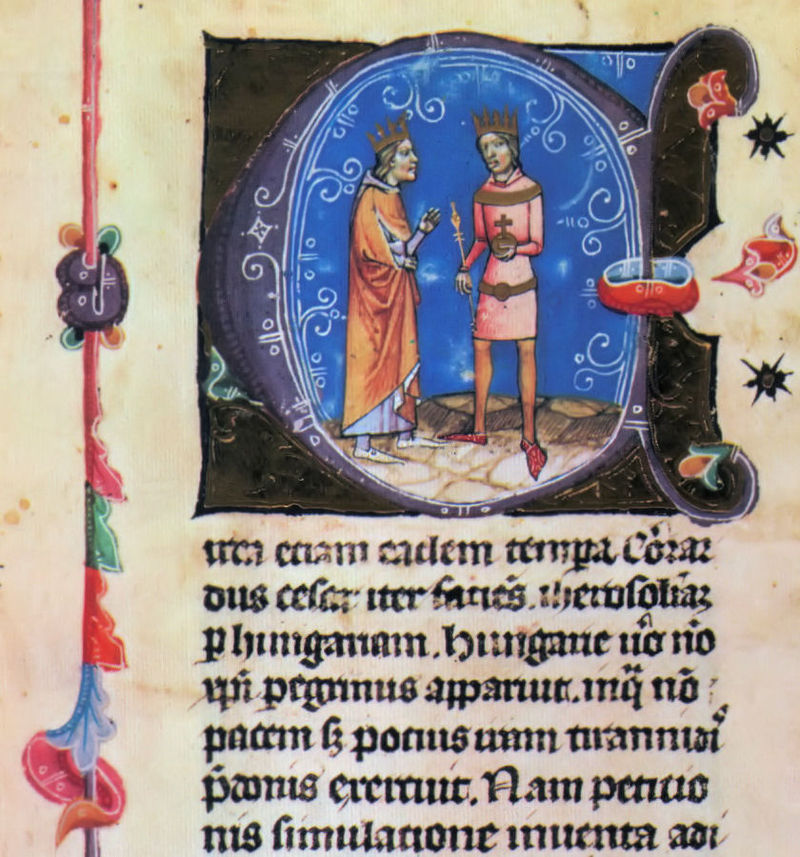 Circa etiam eadem tempa Cōrar
dus cesar iter faciēs iherosolimā
ꝑ hungariam. hungarie uo nō
xp̄i pegrinus apparuit. in qͣ nō
pacem sꝫ pocius uiam tirannidi
p̄donis exercuit. Nam peticio
nis simulatione inuenta adi